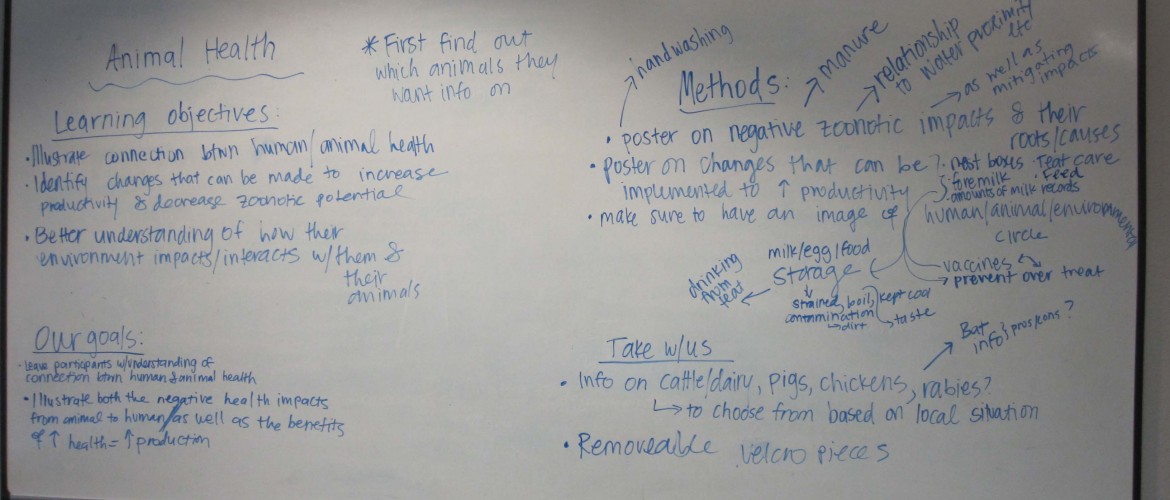 Animal Health
* First find out
which animals they
want info on
Learning objectives:
• Illustrate connection btwn human/animal health
• Identify changes that can be made to increase
productivity & decrease zoonotic potential
• Better understanding of how their
environment impacts/interacts w/them &
their
animals
Our goals:
- leave participants w/understanding of
connection btwn human & animal health
• Illustrate both the negative health impacts
from animal to human/as well as the benefits
↑ health = ↑ production
Methods:
handwashing
manure
relationship
to water proximity
etc
as well as
mitigating
impacts
• poster on negative zoonotic impacts & their
roots/causes
• poster on changes that can be
implemented to ↑ productivity
? • nest boxes • teat care
• foremilk • feed
• amounts of milk records
• make sure to have an image of
human/animal/environmental
circle
milk/egg/food
storage
drinking
from
teat
strained, boil, kept cool
contamination → taste
→ dirt
vaccines
prevent over treat
Take w/us
Bat
info? pros/cons?
• Info on cattle/dairy, pigs, chickens, rabies?
↳ to choose from based on local situation
• Removeable velcro pieces